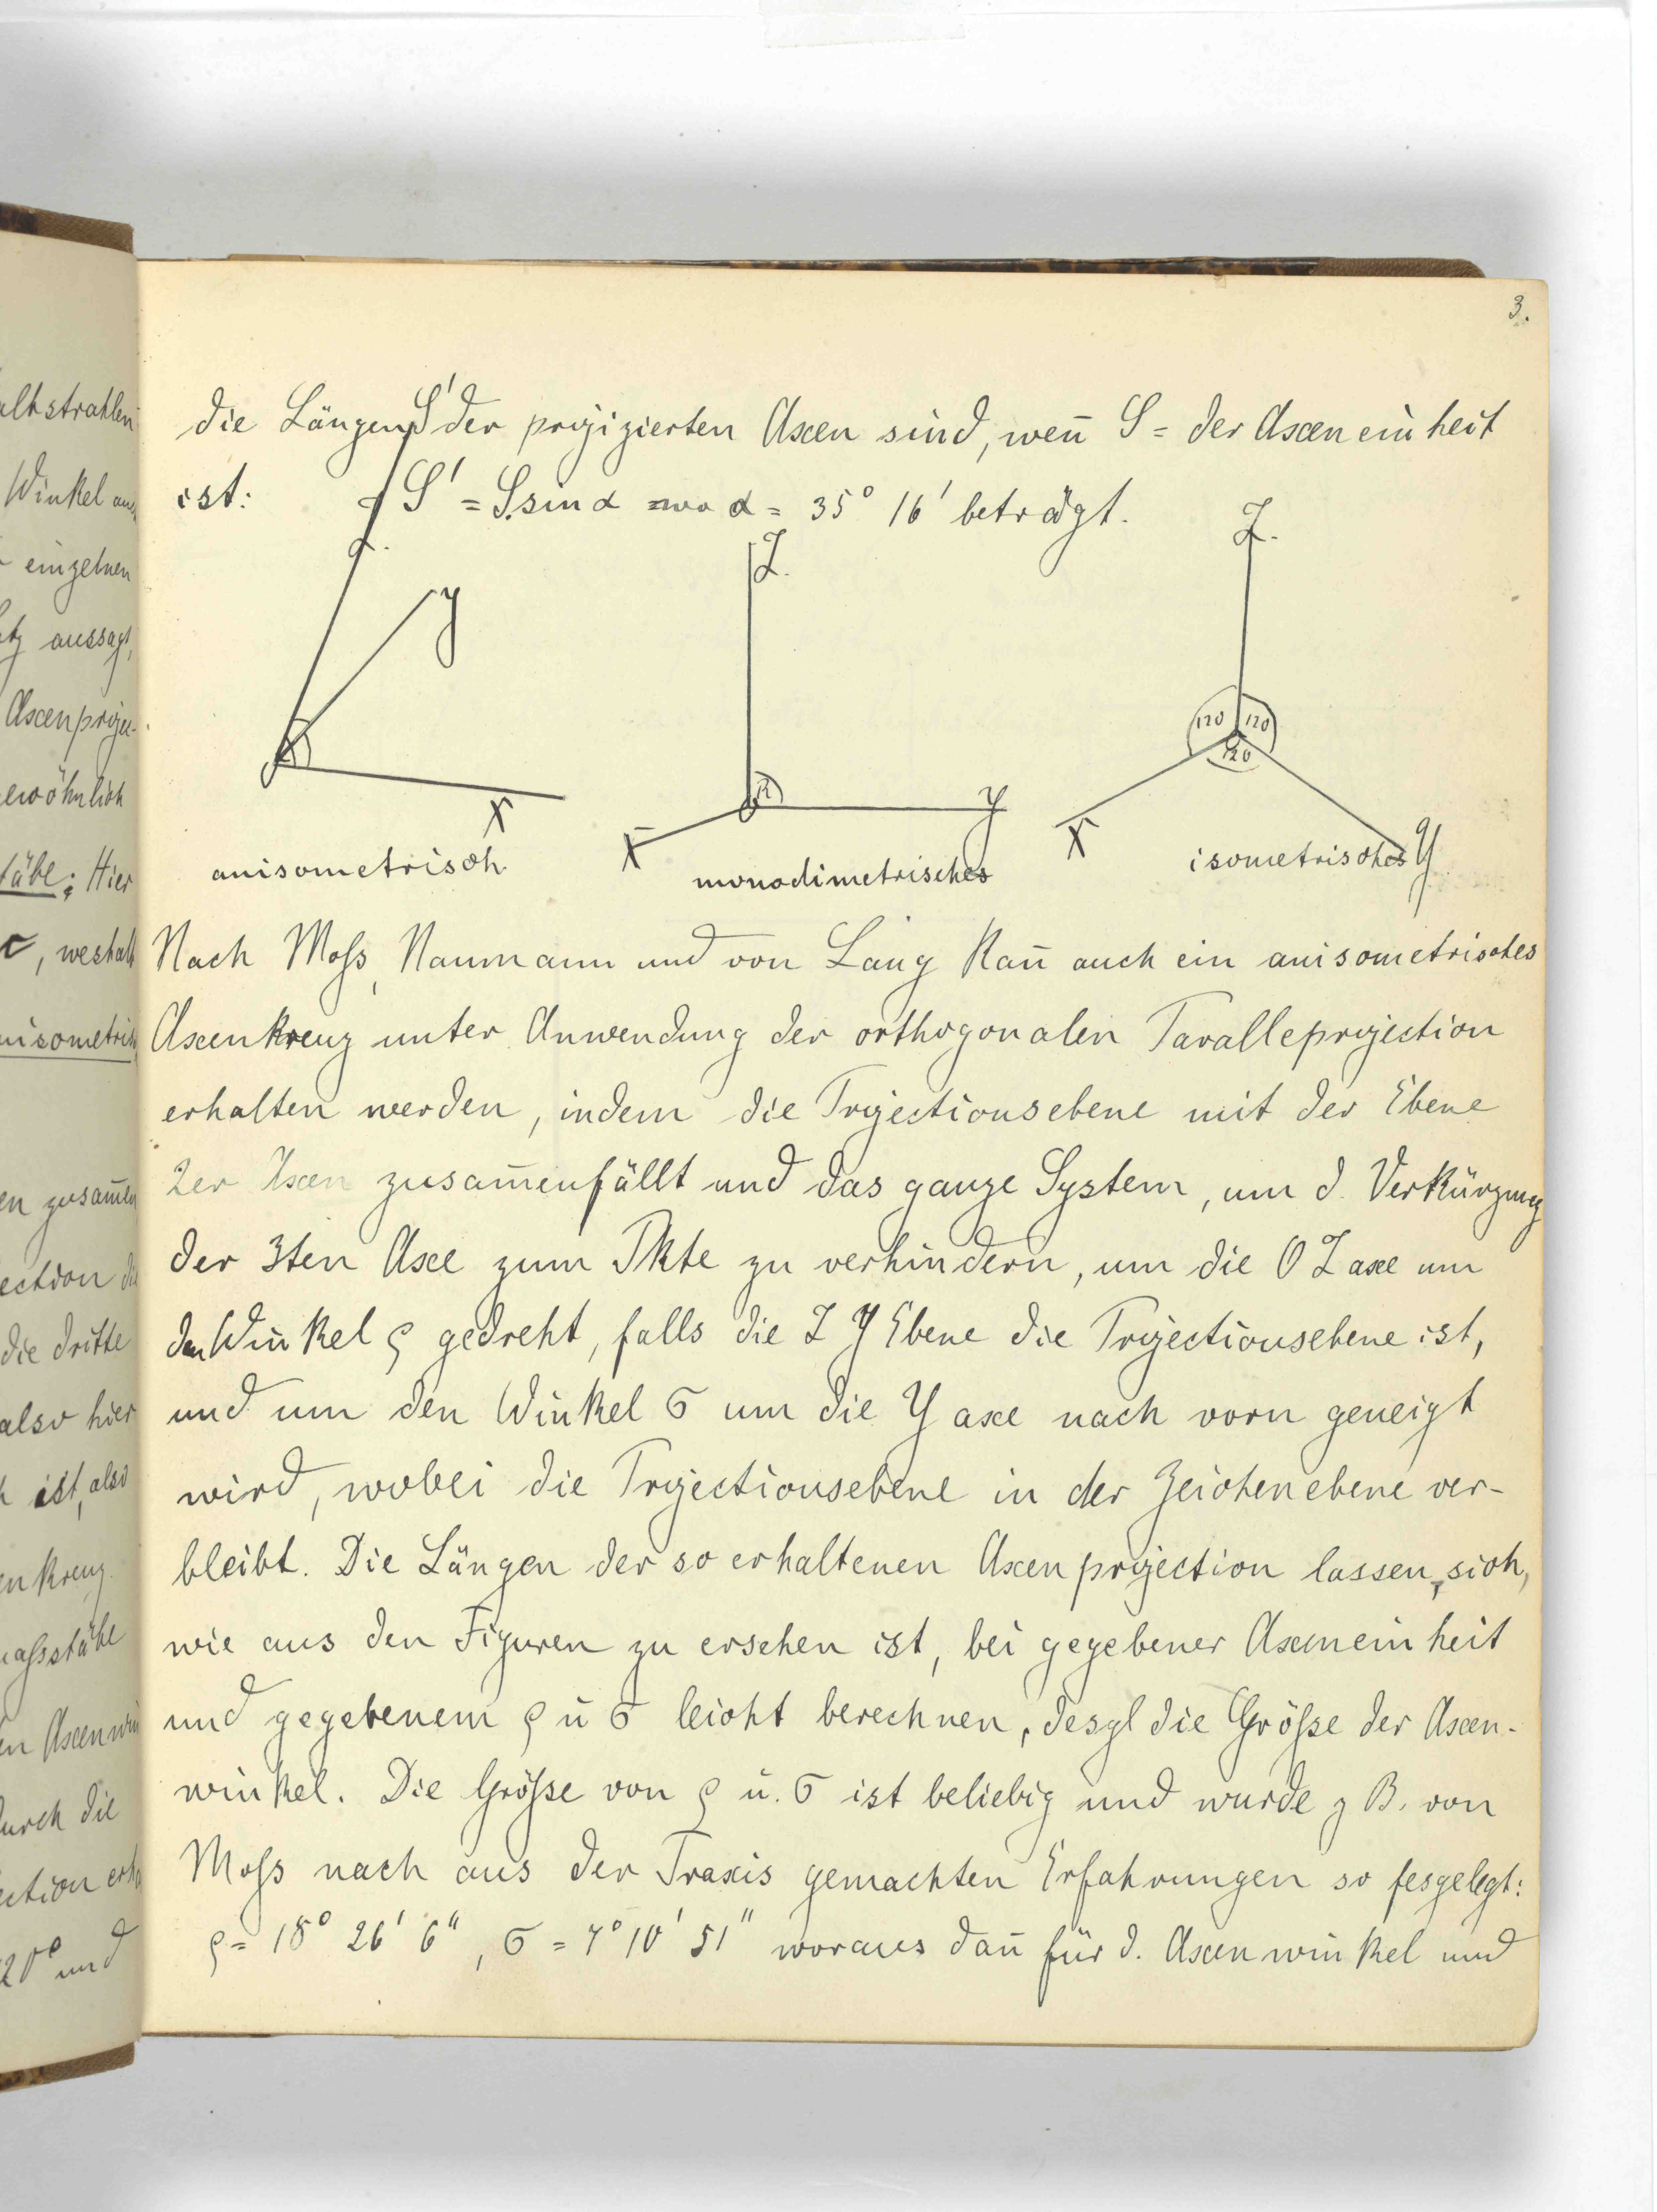 3.
die Längen S' der projizierten Axen sind, wen̄ S = der Axeneinheit
ist: S' = S sin α wo α = 35° 16' beträgt.
Z.
y
X
anisometrisch
Z.
R
y
X
monodimetrisches
Z.
120
120
120
X
Y
isometrisches
Nach Moſs, Naumann und von Lang kan̄ auch ein anisometrisches
Axenkreuz unter Anwendung der orthogonalen Paralleprojection
erhalten werden, indem die Projectionsebene mit der Ebene
2er Axen zusam̄enfällt und das ganze System, um d. Verkürzung
der 3ten Axe zum Pkte zu verhindern, um die O Z axe um
den Winkel ϱ gedreht, falls die Z Y Ebene die Projectionsebene ist,
und um den Winkel σ um die Y axe nach vorn geneigt
wird, wobei die Projectionsebene in der Zeichenebene ver-
bleibt. Die Längen der so erhaltenen Axenprojection lassen, sich,
wie aus den Figuren zu ersehen ist, bei gegebener Axeneinheit
und gegebenem ϱ u σ leicht berechnen, desgl die Gröſse der Axen-
winkel. Die Gröſse von ϱ u. σ ist beliebig und wurde z B. von
Moſs nach aus der Praxis gemachten Erfahrungen so fesgelegt:
ϱ = 18° 26' 6", σ = 7° 10' 51" woraus dan̄ für d. Axenwinkel und
albstrahlen
Winkel
einzelnen
aussagt,
Axenprojec-
ewöhnlich
täbe; Hier
, weshalb
nisometrisch
en zusam̄en
ection
die dritte
also hier
ist, also
enkreuz.
aſsstäbe
en Axenwin
durch die
ection
120° und